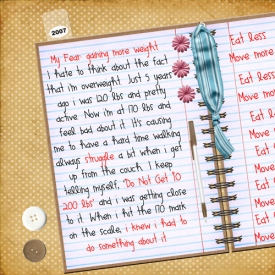 2007
My Fear gaining more weight
I hate to think about the fact
that i'm overweight. Just 5 years
ago i was 120 lbs and pretty
active. Now i'm at 170 lbs and
feel bad about it. It's causing
me to have a hard time walking
always struggle a bit when i get
up from the couch. I keep
telling myself, 'Do Not Get TO
200 lbs' and i was getting close
to it. When i hit the 170 mark
on the scale, i knew i had to
do something about it
Eat less
Move more
Eat less
Move more
Eat
Move
Eat
Move
Eat
Move